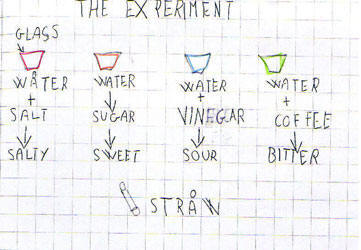 THE EXPERIMENT
GLASS
WÅTER WATER WATER WATER
+ + +
SALT SUGAR VINEGAR COFFEE
SALTY SWEET SOUR BITTER
STRÅW